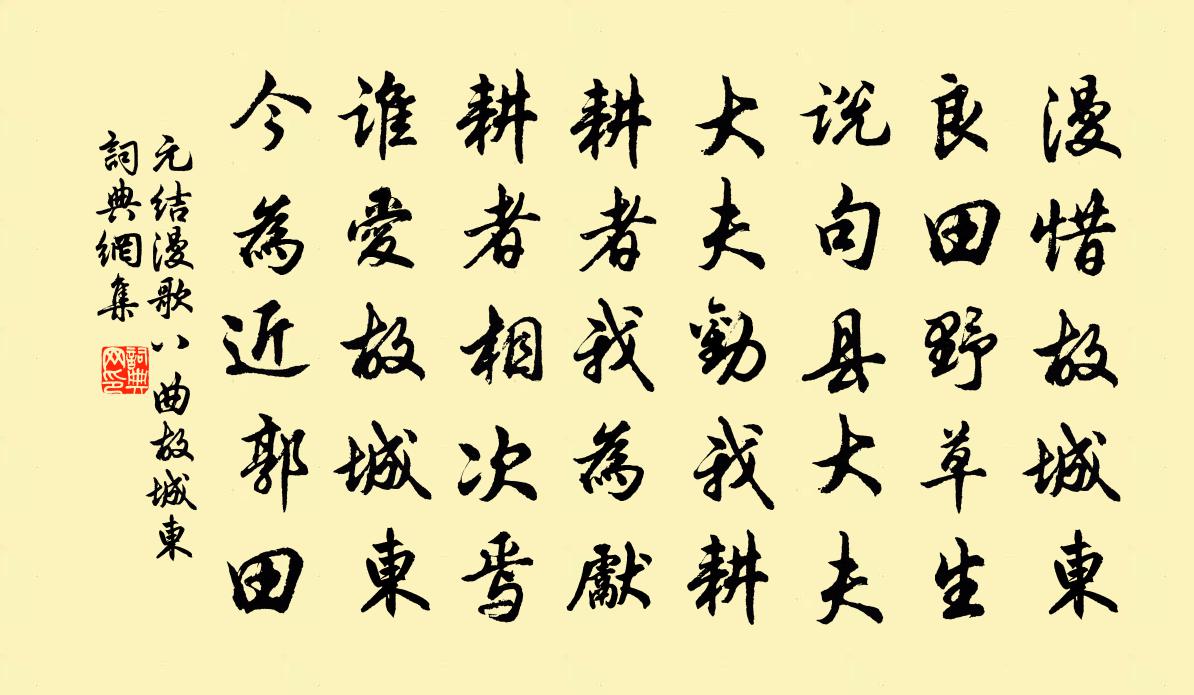 漫惜故城東
良田野草生
说句县大夫
大夫勸我耕
耕者我為獻
耕者相次焉
谁愛故城東
今為近郭田
元结漫歌八曲故城東
詞典網集
詞典网印